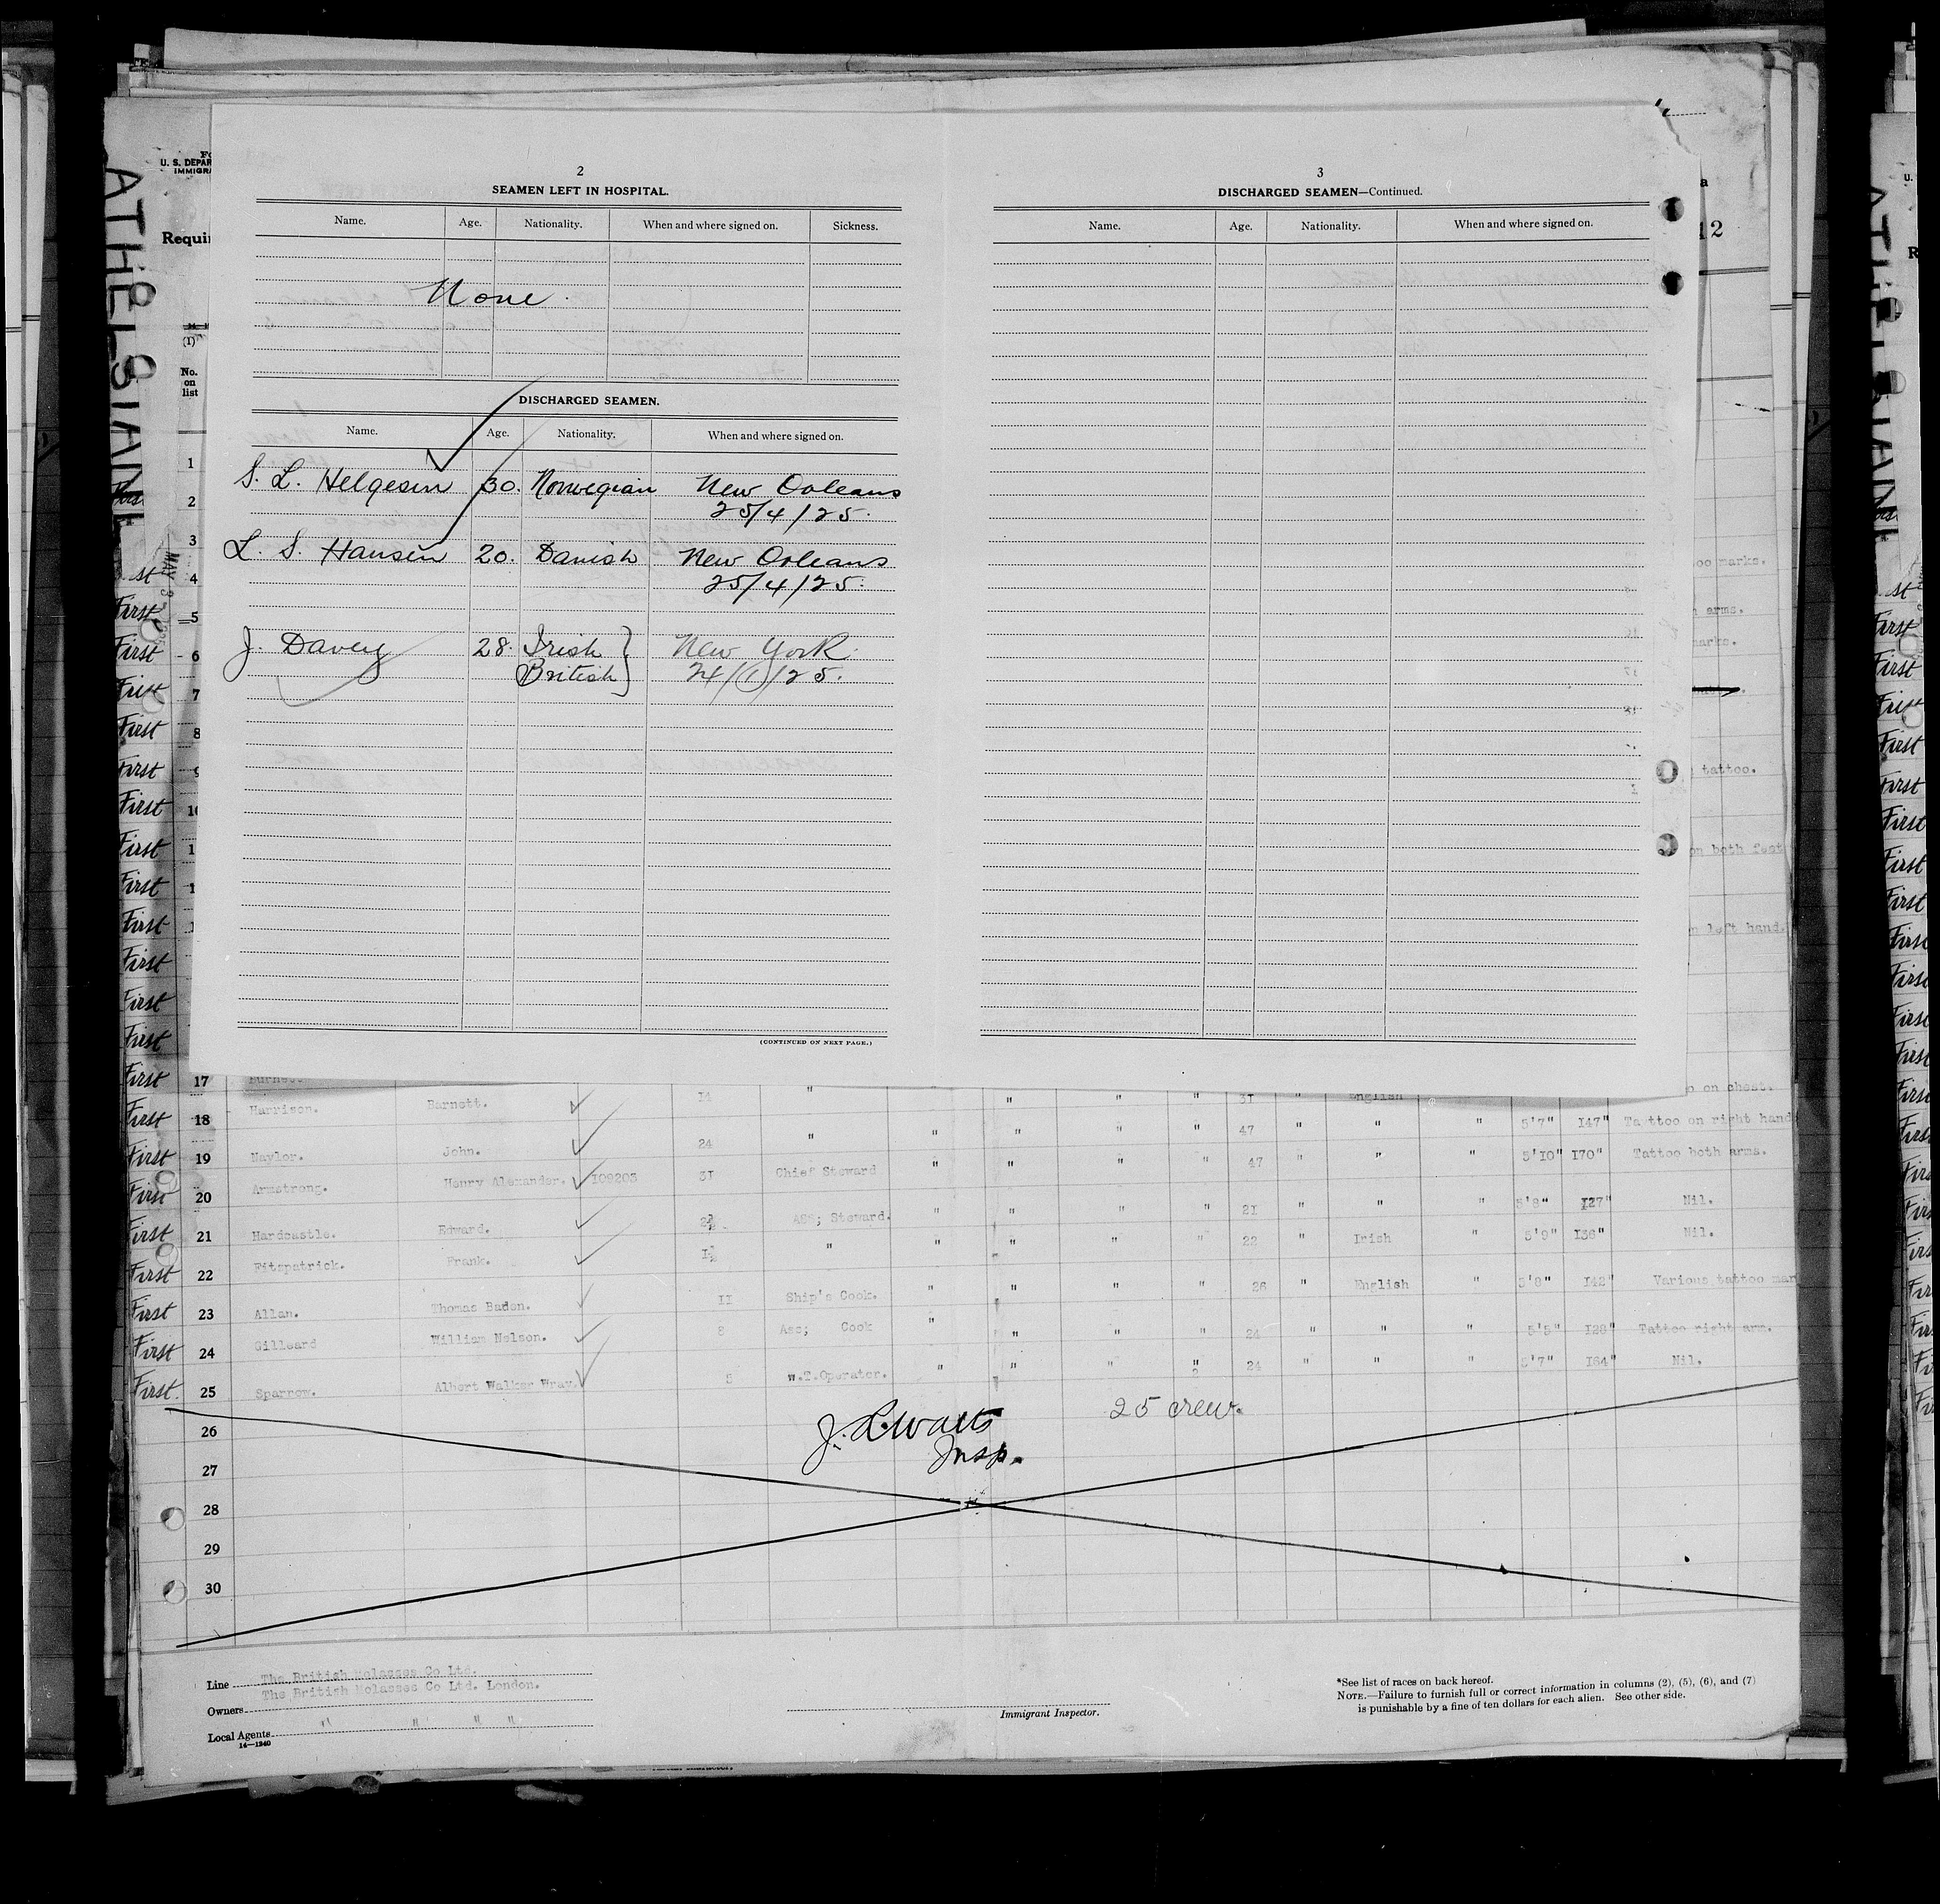 2
SEAMEN LEFT IN HOSPITAL.
Name. Age. Nationality. When and where signed on. Sickness.
None.
DISCHARGED SEAMEN.
Name. Age. Nationality. When and where signed on.
S. L. Helgesen 30. Norwegian New Orleans
25/4/25.
L. S. Hansen 20. Danish New Orleans
25/4/25.
J. Davey 28. Irish New York.
British 24/1/25.
(CONTINUED ON NEXT PAGE.)
3
DISCHARGED SEAMEN—Continued.
Name. Age. Nationality. When and where signed on.
U. S. DEPAR
IMMIGRA
Requir
12
ATHELSTANE
(1)
No.
on
list
1
2
3
4
5
6
7
8
oo marks.
arms.
marks.
tattoo.
on both feet
n left hand.
First 17 Burnett on chest.
First 18 Harrison. Barnett. 14 " " " " 31 " English " 5'7" 147" Tattoo on right hand
First 19 Naylor. John. 24 " " " " " 47 " " " 5'10" 170" Tattoo both arms.
First 20 Armstrong. Henry Alexander. 109203 31 Chief Steward " " " " 47 " " " 5'8" 127" Nil.
First 21 Hardcastle. Edward. 2½ Ass; Steward. " " " " 21 " " " 5'9" 136" Nil.
First 22 Fitzpatrick. Frank. 1½ " " " " " 22 " Irish " 5'8" 142" Various tattoo mar
First 23 Allan. Thomas Baden. 11 Ship's Cook. " " " " 26 " English " 5'5" 128" Tattoo right arm.
First 24 Gilleard William Nelson. 8 Ass; Cook " " " " 24 " " " 5'7" 164" Nil.
First. 25 Sparrow. Albert Walker Wray. 5 W.T.Operator. " " " " 24 " " "
J. L. Watts 25 crew.
Insp.
26
27
28
29
30
Line The British Molasses Co Ltd.
Owners The British Molasses Co Ltd. London.
Local Agents " " " "
14—1240
Immigrant Inspector.
*See list of races on back hereof.
NOTE.—Failure to furnish full or correct information in columns (2), (5), (6), and (7)
is punishable by a fine of ten dollars for each alien. See other side.